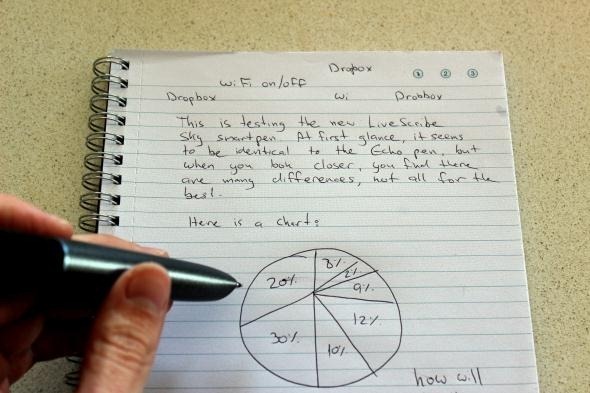 Dropbox
① ② ③
WiFi on/off
Dropbox Wi Drobbox
This is testing the new LiveScribe
Sky smartpen. At first glance, it seems
to be identical to the Echo pen, but
when you look closer, you find there
are many differences, not all for the
best.
Here is a chart:
8%
2%
20%
9%
12%
30%
10%
how will